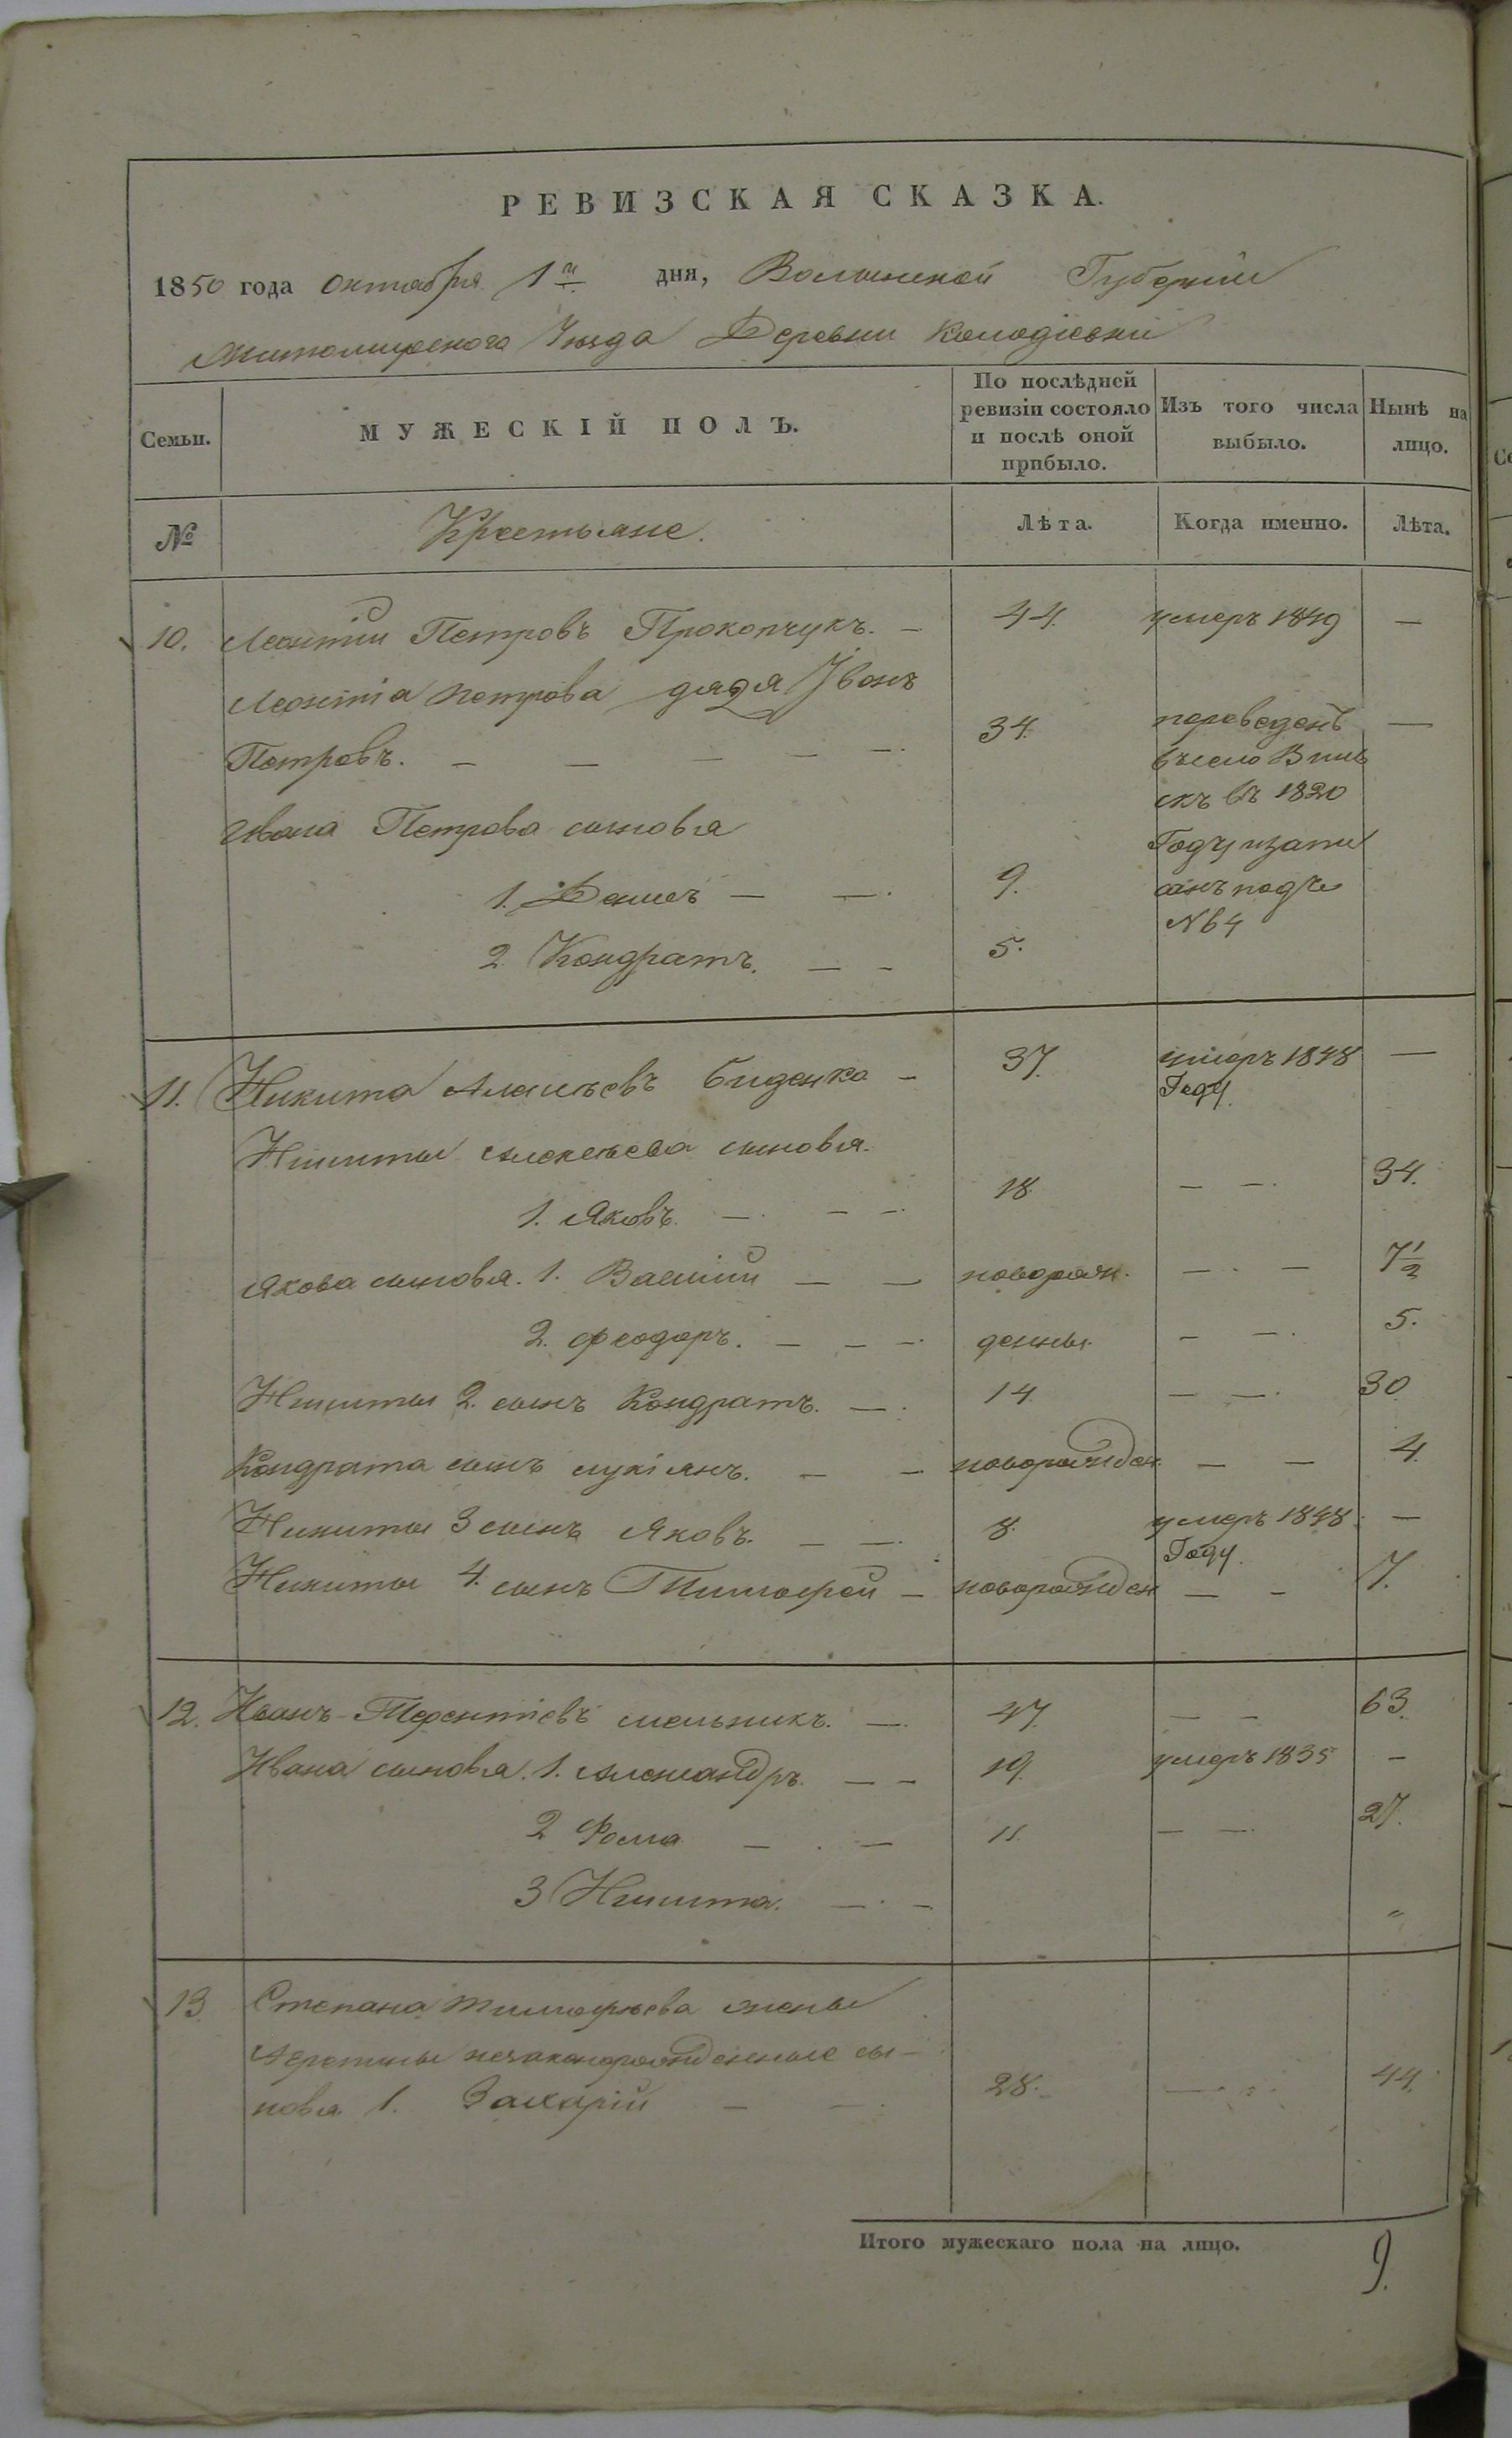 РЕВИЗСКАЯ СКАЗКА.
1850 года октября 1го дня, Волынской Губерніи
Житомирского Уезда Деревни Колодіевки
Семьи. МУЖЕСКІЙ ПОЛЪ. По послѣдней ревизіи состояло и послѣ оной прибыло. Изъ того числа выбыло. Нынѣ на лицо.
№ Крестьяне. Лѣта. Когда именно. Лѣта.
10. Леонтій Петровъ Прокопчукъ. — 44. умеръ 1849 —
Леонтіа петрова дядя Іванъ
Петровъ. — — — — — 34. переведенъ —
въ село
Ивана Петрова сыновья въ 1820
Году
1. Денисъ — — 9. подъ
2. Кондратъ. — — 5. №
11. Никита Алексѣевъ — 37. умеръ 1848 —
Году.
Никиты алексѣева сыновья.
1. Яковъ. — — — 18. — — 34.
Якова сыновья. 1. Василій — — новорож. — — 7½
2. Феодоръ. — — — денны. — — 5.
Никиты 2. сынъ Кондратъ. — 14. — — 30
Кондрата сынъ лукіянъ. — — новорожден — — 4.
Никиты 3 сынъ Яковъ. — — 8. умеръ 1848. —
Году.
Никиты 4. сынъ Тимофей — новорожден — — 7.
12. Иванъ Терентіевъ мельникъ. — 47. — — 63.
Ивана сыновья. 1. александръ. — — 19. умеръ 1835 —
2 Фома — — 11. — — 27.
3 Никита. — — "
13 Степана тимофѣева жены
незаконорожденные сы-
новья 1. Захарій — — 28. — 44.
Итого мужескаго пола на лицо. 9.